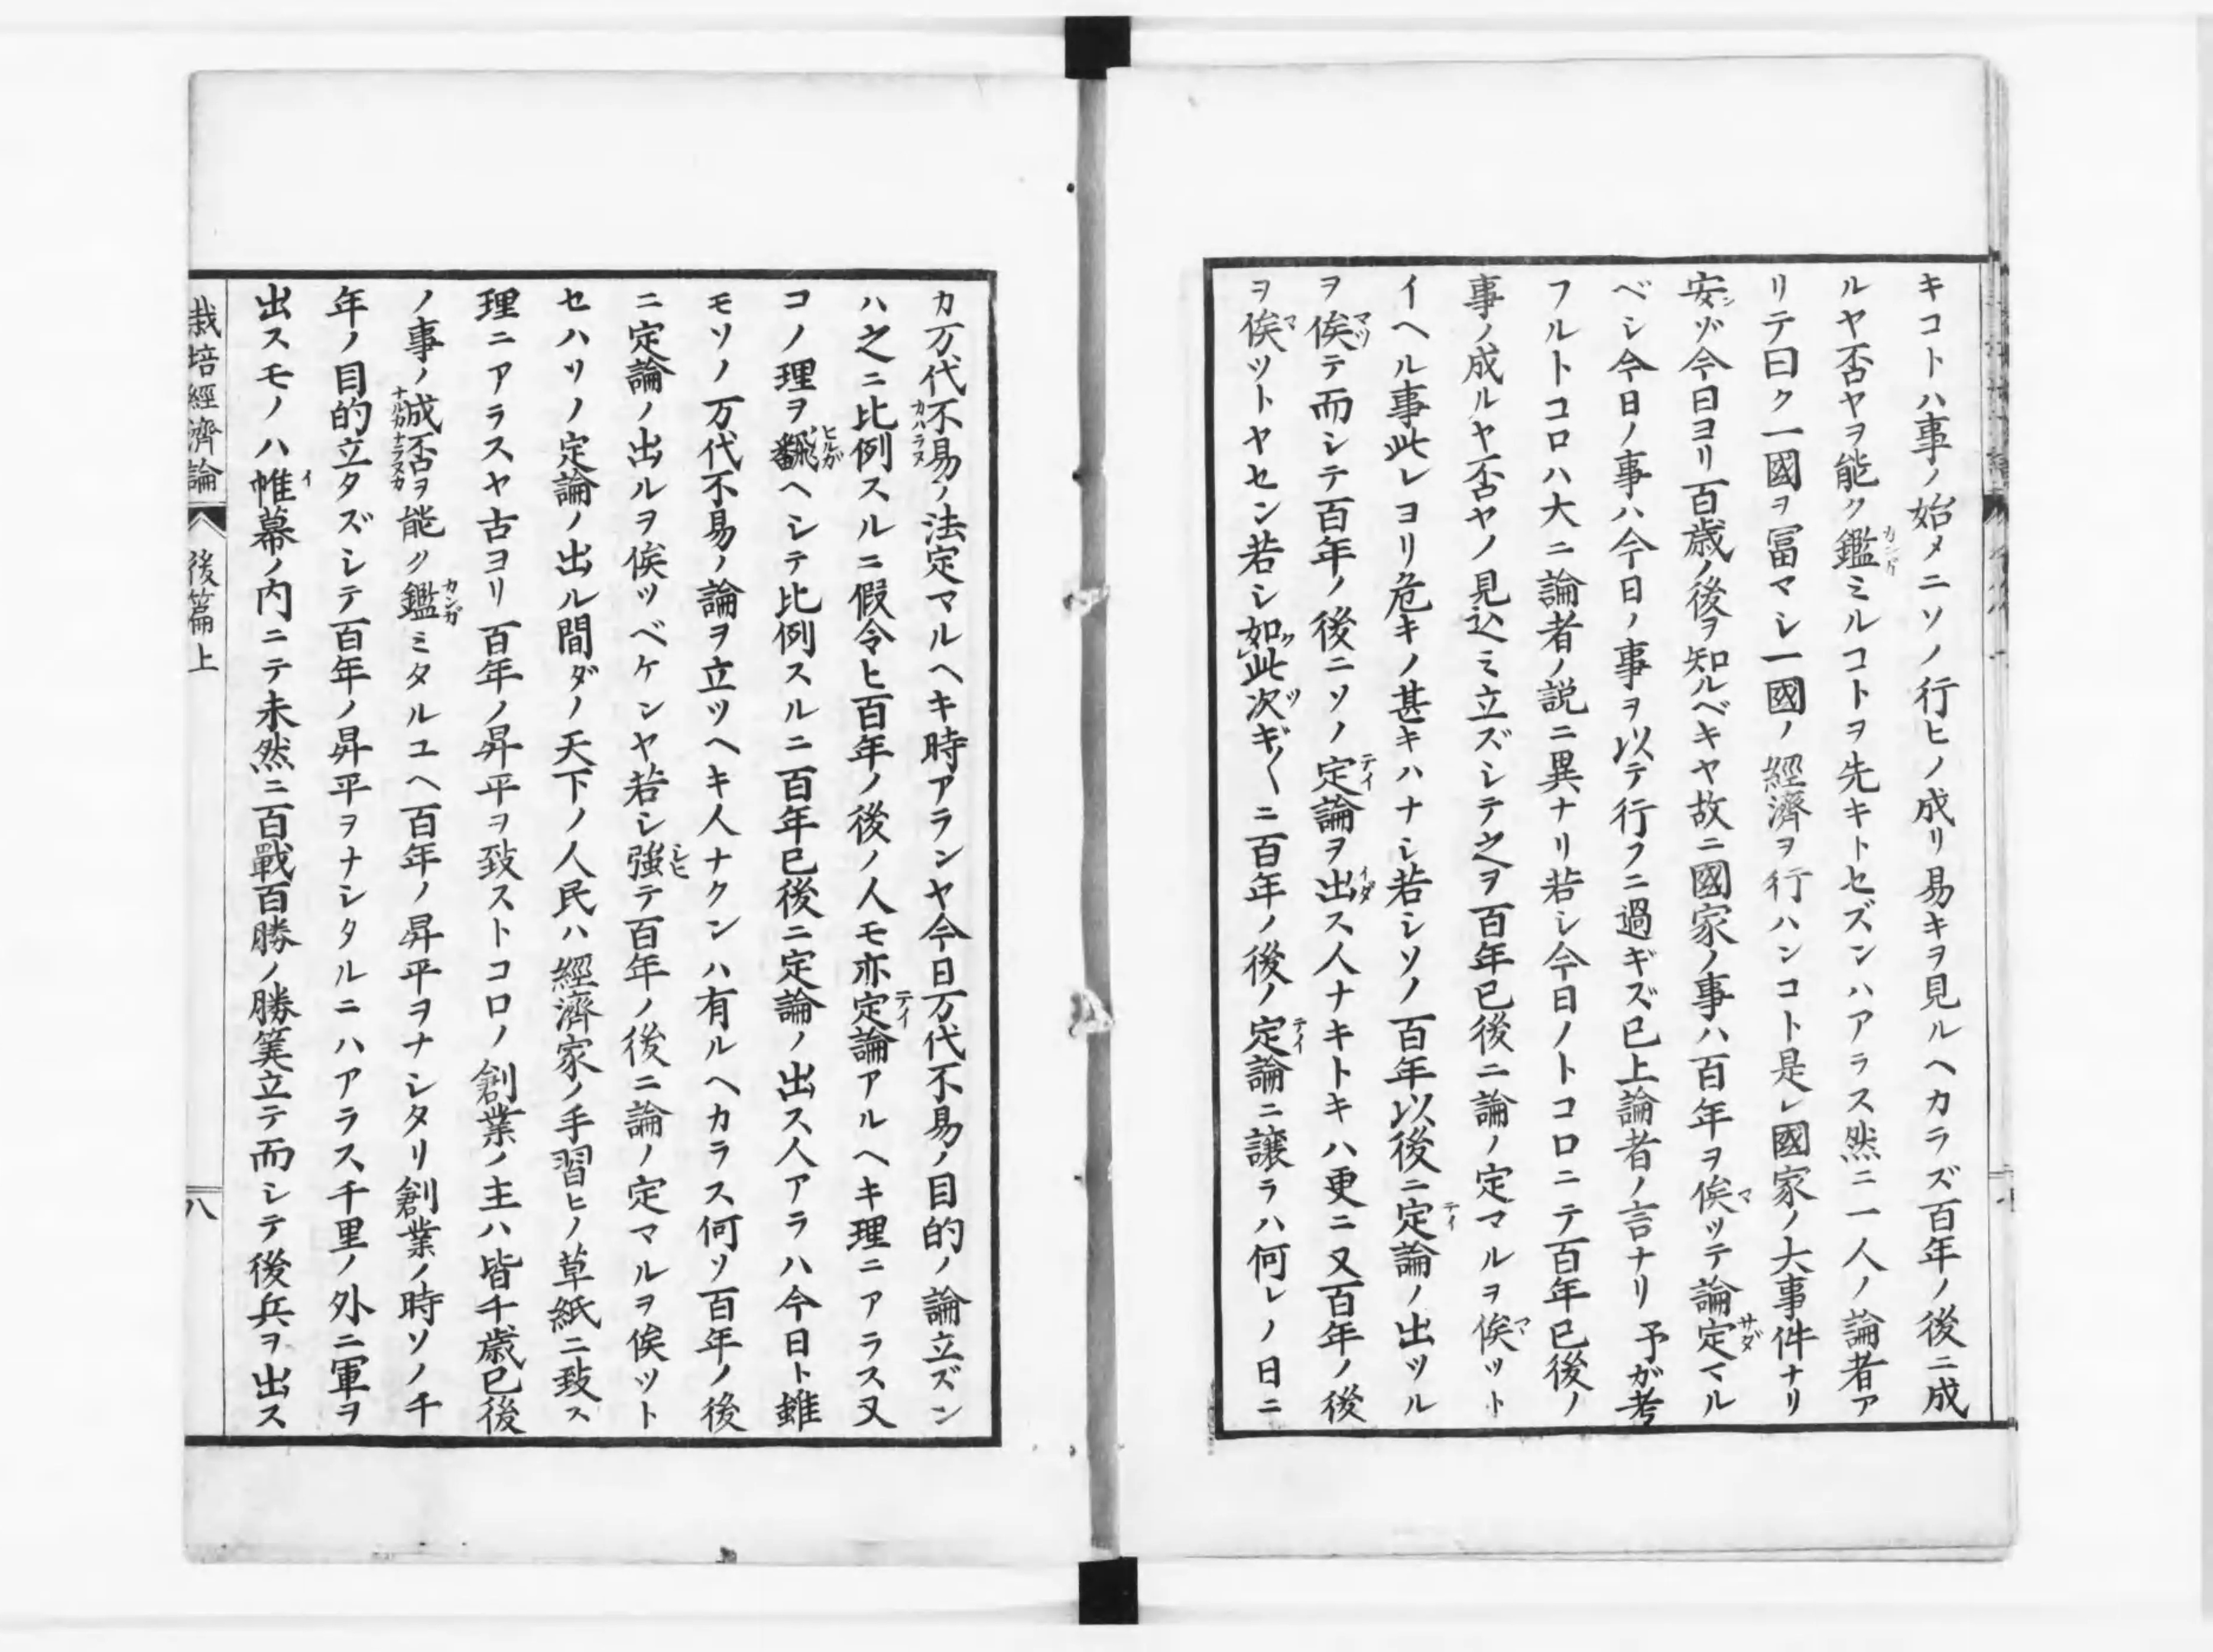 キコトハ事ノ始メニソノ行ヒノ成リ易キヲ見ルヘカラズ百年ノ後ニ成
ルヤ否ヤヲ能ク鑑ミルコトヲ先キトセズンハアラス然ニ一人ノ論者ア
リテ曰ク一國ヲ冨マシ一國ノ經濟ヲ行ハンコト是レ國家ノ大事件ナリ
安ンゾ今日ヨリ百歳ノ後ヲ知ルベキヤ故ニ國家ノ事ハ百年ヲ俟ッテ論定マル
ベシ今日ノ事ハ今日ノ事ヲ以テ行フニ過ギズ已上論者ノ言ナリ予が考
フルトコロハ大ニ論者ノ説ニ異ナリ若シ今日ノトコロニテ百年已後ノ
事ノ成ルヤ否ヤノ見込ミ立ズシテ之ヲ百年已後ニ論ノ定マルヲ俟ット
イヘル事此レヨリ危キノ甚キハナシ若シソノ百年以後ニ定論ノ出ツル
ヲ俟テ而シテ百年ノ後ニソノ定論ヲ出ス人ナキトキハ更ニ又百年ノ後
ヲ俟ットヤセン若シ如此次ギ〱ニ百年ノ後ノ定論ニ譲ラハ何レノ日ニ
カ万代不易ノ法定マルヘキ時アランヤ今日万代不易ノ目的ノ論立ズン
ハ之ニ比例スルニ假令ヒ百年ノ後ノ人モ亦定論アルヘキ理ニアラス又
コノ理ヲ飜ヘシテ比例スルニ百年已後ニ定論ノ出ス人アラハ今日ト雖
モソノ万代不易ノ論ヲ立ツヘキ人ナクンハ有ルヘカラス何ソ百年ノ後
ニ定論ノ出ルヲ俟ツベケンヤ若シ強テ百年ノ後ニ論ノ定マルヲ俟ット
セハソノ定論ノ出ル間ダノ天下ノ人民ハ經濟家ノ手習ヒノ草紙ニ致ス
理ニアラスヤ古ヨリ百年ノ昇平ヲ致ストコロノ創業ノ主ハ皆千歳已後
ノ事ノ成否ヲ能ク鑑ミタルユヘ百年ノ昇平ヲナシタリ創業ノ時ソノ千
年ノ目的立タズシテ百年ノ昇平ヲナシタルニハアラス千里ノ外ニ軍ヲ
出スモノハ帷幕ノ内ニテ未然ニ百戰百勝ノ勝筭立テ而シテ後兵ヲ出ス
栽培經濟論 後篇上 八